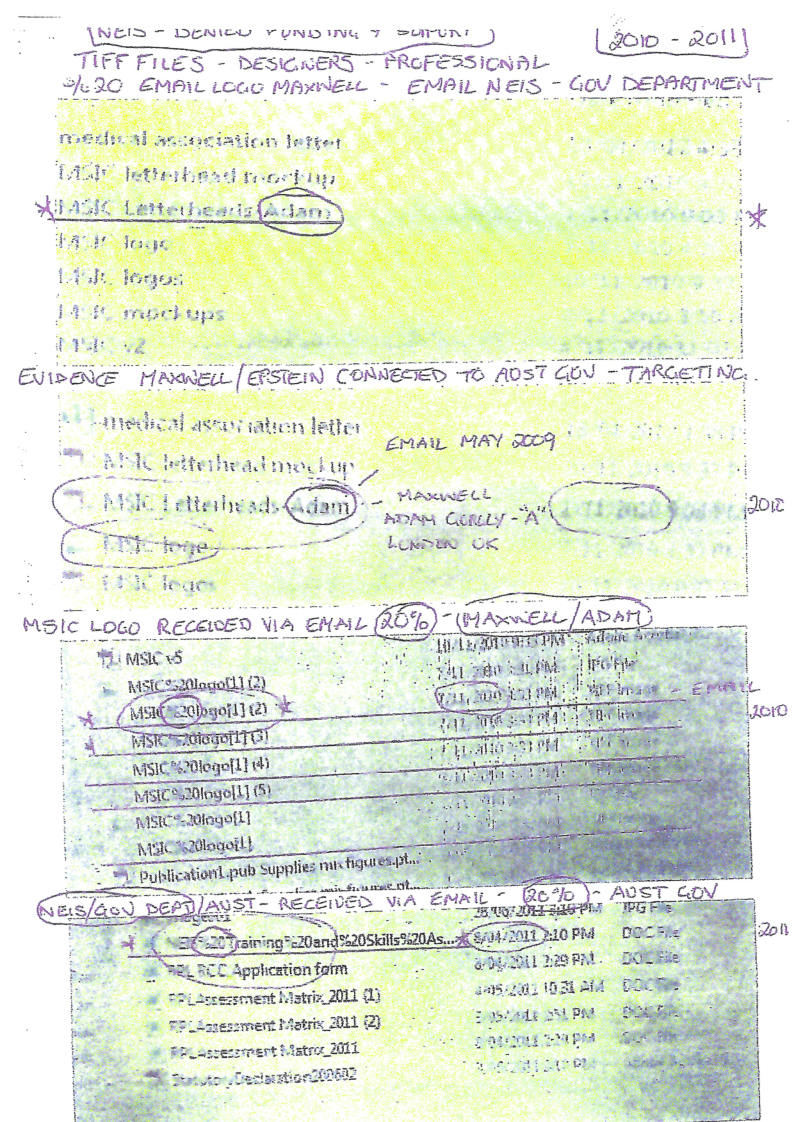 NEIS - DENIED FUNDING & SUPORT
2010 - 2011
TIFF FILES - DESIGNERS - PROFESSIONAL
%20 EMAIL LOGO MAXWELL - EMAIL NEIS - GOV DEPARTMENT
medical association letter
MSIC letterhead mockup
MSIC Letterheads (Adam)
MSIC logo
MSIC logos
MSIC mockups
MSIC v2
EVIDENCE MAXWELL/EPSTEIN CONNECTED TO AUST GOV - TARGETING.
medical association letter
EMAIL MAY 2009
MSIC letterhead mockup
MSIC Letterheads Adam - MAXWELL
ADAM "A"
2010
LONDON UK
MSIC logo
MSIC logos
MSIC LOGO RECEIDED VIA EMAIL 20% - (MAXWELL/ADAM)
MSIC v5
MSIC%20logo[1] (2) JPG File
MSIC%20logo[1] (2) - EMAIL
2010
MSIC%20logo[1] (3)
MSIC%20logo[1] (4)
MSIC%20logo[1] (5)
MSIC%20logo[1]
MSIC%20logo[1]
Publication1.pub Supplies mix figures.pt...
NEIS/GOV DEPT/AUST - RECEIVED VIA EMAIL - 20% - AUST GOV
JPG File
NEIS%20Training%20and%20Skills%20As... 8/04/2011 2:10 PM DOC File 2011
RPL RCC Application form 8/04/2011 2:29 PM DOC File
RPLAssessment Matrix_2011 (1) 4/05/2011 10:31 AM DOC File
RPLAssessment Matrix_2011 (2) DOC File
RPLAssessment Matrix_2011 DOC File
StatutoryDeclaration200602